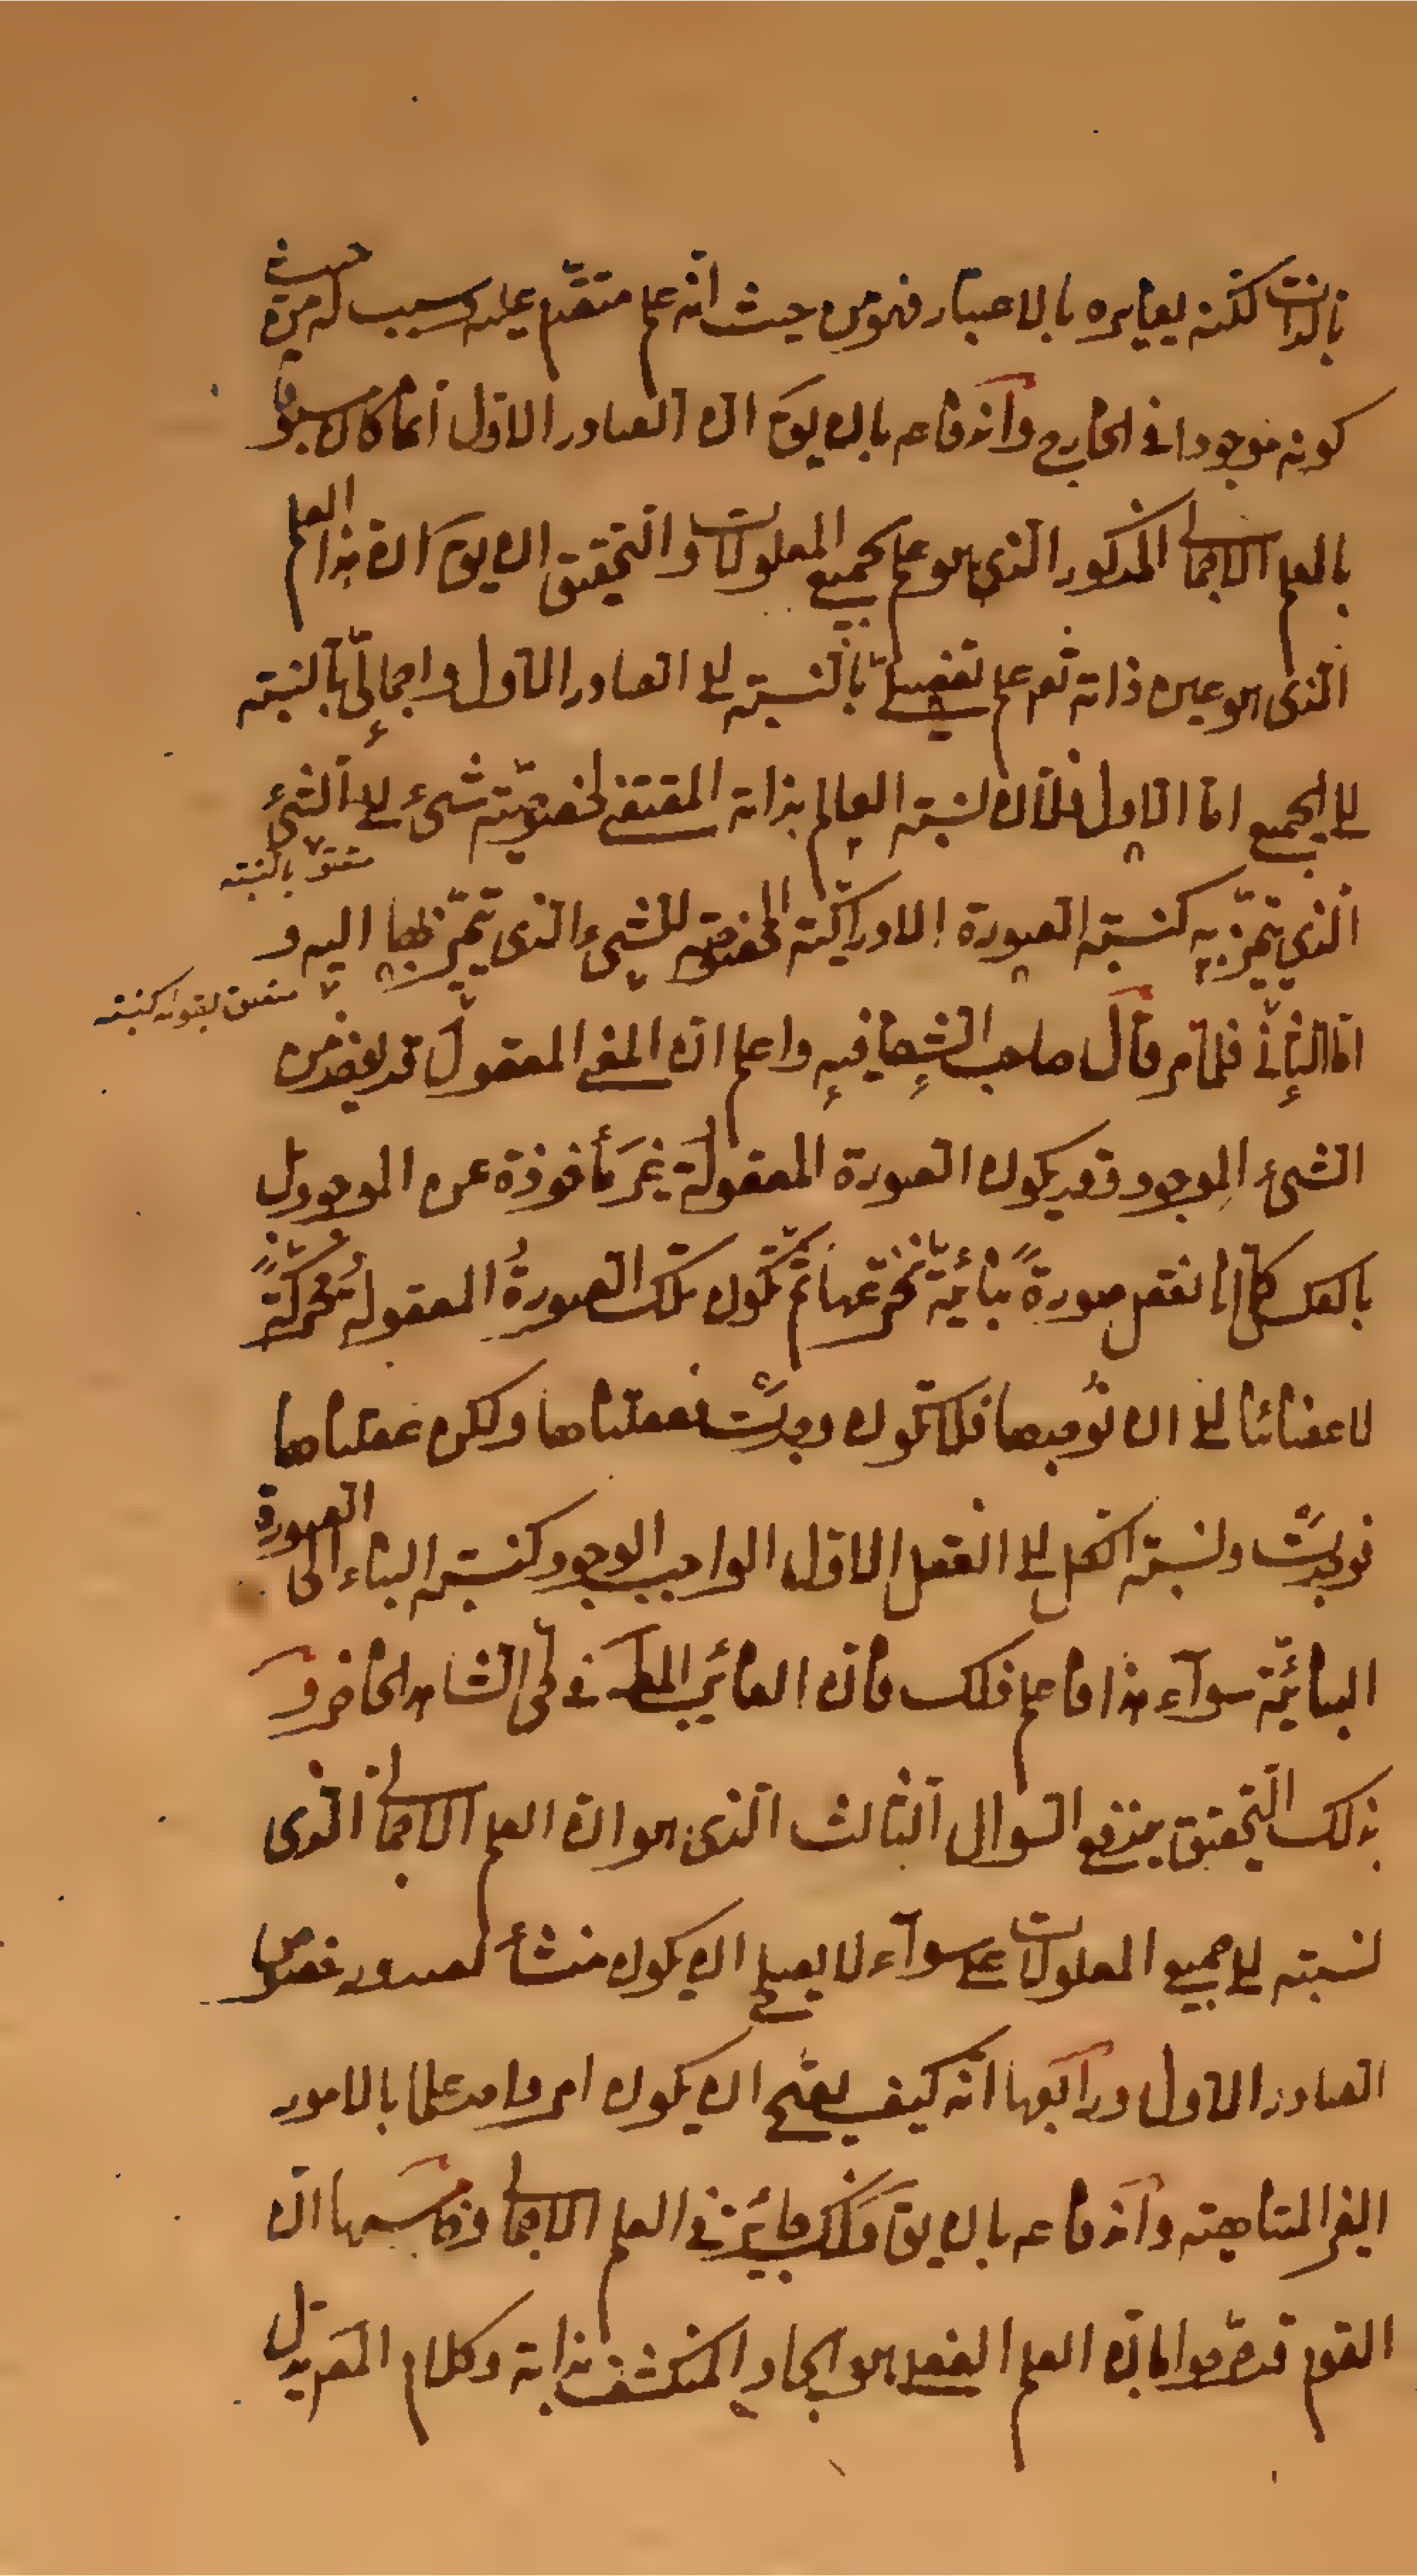 بالذات لكنه يغايره بالاعتبار فهو من حيث انّه علم متقدّم عليه وسبب له من حيث
كونه موجودا في الخارج واندفاعه بان يقَ انّ الصادر الاوّل انما كان مسبوقا
بالعلم الاجمالي المذكور الذي هو علم بجميع المعلولات والتحقيق ان يقَ انّ هذا العلم
الذي هو عين ذاته تعم علم تفصيلي بالنسبة الى الصادر الاول واجماليّ بالنسبة
الى الجميع امّا الاول فلان نسبة العالم بذاته المقتضي لخصوصيّة شيء الى الشيء
متعلق بالنسبة
الذي يتميّز به كنسبة الصورة الادراكيّة المخصوصة للشيء الذي يتميّز بها اليه و
متعلق بقوله كنسبة
امّا الثاني فلما مر قال صاحب الشفا فيه واعلم انّ المعنى المعقول قد يؤخذ من
الشيء الموجود وقد يكون الصورة المعقولة غير مأخوذة عن الموجود بل
بالعكس كما انا نعقل صورةً بنائيّة نخترعها ثمّ تكون تلك الصورةُ المعقولةُ محرّكةً
لاعضائنا الى ان نُوجدها فلا تكون وجدت فعقلناها ولكن عقلناها
فوجدت ونسبة الكل الى العقل الاول الواجب الوجود كنسبة البناء الى الصورة
البنائيّة سوآء هذا فاعلم ذلك فان الغائب المطـ في طيّ الشاهد الحاضر و
بذلك التحقيق يندفع السوال الثالث الذي هو انّ العلم الاجمالي الذي
نسبته الى جميع المعلولات على سوآء لا يصلح ان يكون منشأ لصدور خصوص
الصادر الاول ورابعها انّه كيف يصّح ان يكون امر واحد علما بالامور
الغير المتناهية واندفاعه بان يقَ ذلك جائز في العلم الاجمالي وخامسها انّ
القوم قد صرّحوا بانّ العلم الفعلي هو ايجاد المنكشف بذاته وكلام المص يدل